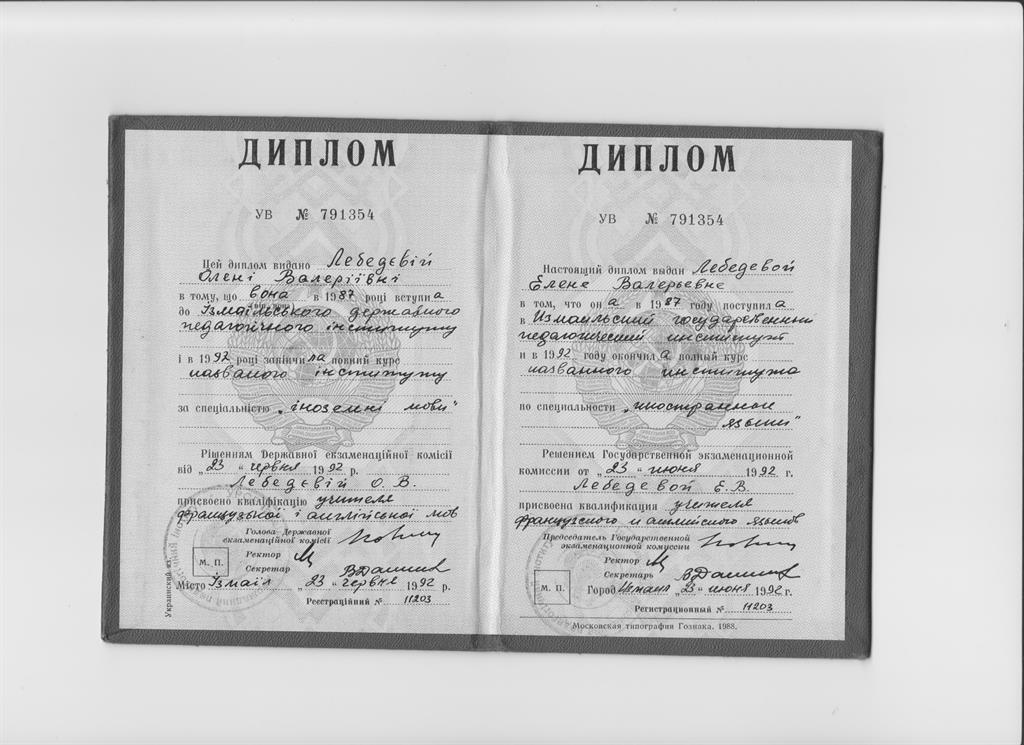 ДИПЛОМ
УВ № 791354
Цей диплом видано Лебедєвій
Олені Валеріївні
в тому, що вона в 1987 році вступила
до Ізмаїльського державного
педагогічного інституту
і в 1992 році закінчила повний курс
названого інституту
за спеціальністю „іноземні мови"
Рішенням Державної екзаменаційної комісії
від „23" червня 1992 р.
Лебедєвій О. В.
присвоєно кваліфікацію учителя
французької і англійської мов
Голова Державної
екзаменаційної комісії
Ректор
М. П.
Секретар
Місто Ізмаїл „23" червня 1992 р.
Реєстраційний № 11203
Украинский
ДИПЛОМ
УВ № 791354
Настоящий диплом выдан Лебедевой
Елене Валерьевне
в том, что она в 1987 году поступила
в Измаильский государственный
педагогический институт
и в 1992 году окончила полный курс
названного института
по специальности „иностранные
языки"
Решением Государственной экзаменационной
комиссии от „23" июня 1992 г.
Лебедевой Е. В.
присвоена квалификация учителя
французского и английского языков
Председатель Государственной
экзаменационной комиссии
Ректор
М. П.
Секретарь
Город Измаил „23" июня 1992 г.
Регистрационный № 11203
Московская типография Гознака. 1988.